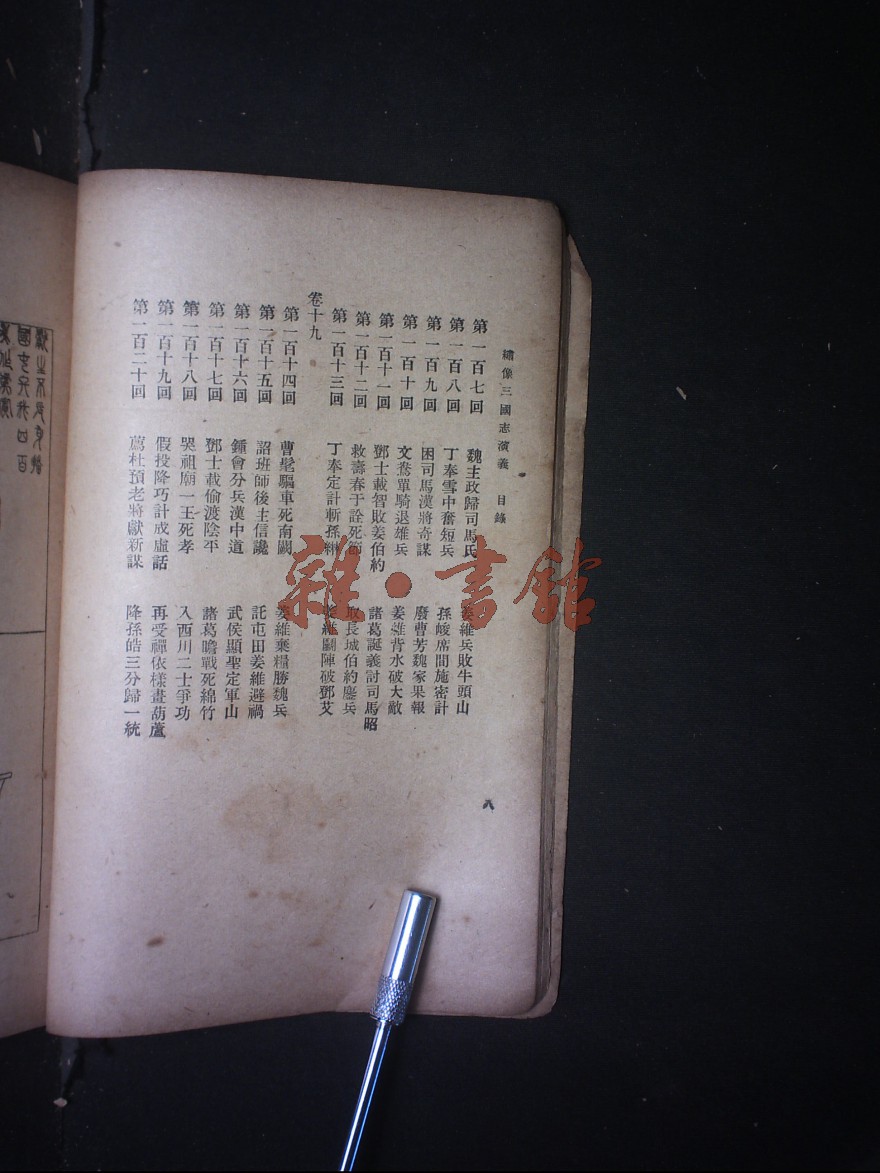 繡像三國志演義 目錄
第一百七回 魏主政歸司馬氏 姜維兵敗牛頭山
第一百八回 丁奉雪中奮短兵 孫峻席間施密計
第一百九回 困司馬漢將奇謀 廢曹芳魏家果報
第一百十回 文鴦單騎退雄兵 姜維背水破大敵
第一百十一回 鄧士載智敗姜伯約 諸葛誕義討司馬昭
第一百十二回 救壽春于詮死節 取長城伯約鏖兵
第一百十三回 丁奉定計斬孫綝 姜維鬭陣破鄧艾
卷十九
第一百十四回 曹髦驅車死南闕 姜維棄糧勝魏兵
第一百十五回 詔班師後主信讒 託屯田姜維避禍
第一百十六回 鍾會分兵漢中道 武侯顯聖定軍山
第一百十七回 鄧士載偷渡陰平 諸葛瞻戰死綿竹
第一百十八回 哭祖廟一王死孝 入西川二士爭功
第一百十九回 假投降巧計成虛話 再受禪依樣畫葫蘆
第一百二十回 薦杜預老將獻新謀 降孫皓三分歸一統
八
雜·書館